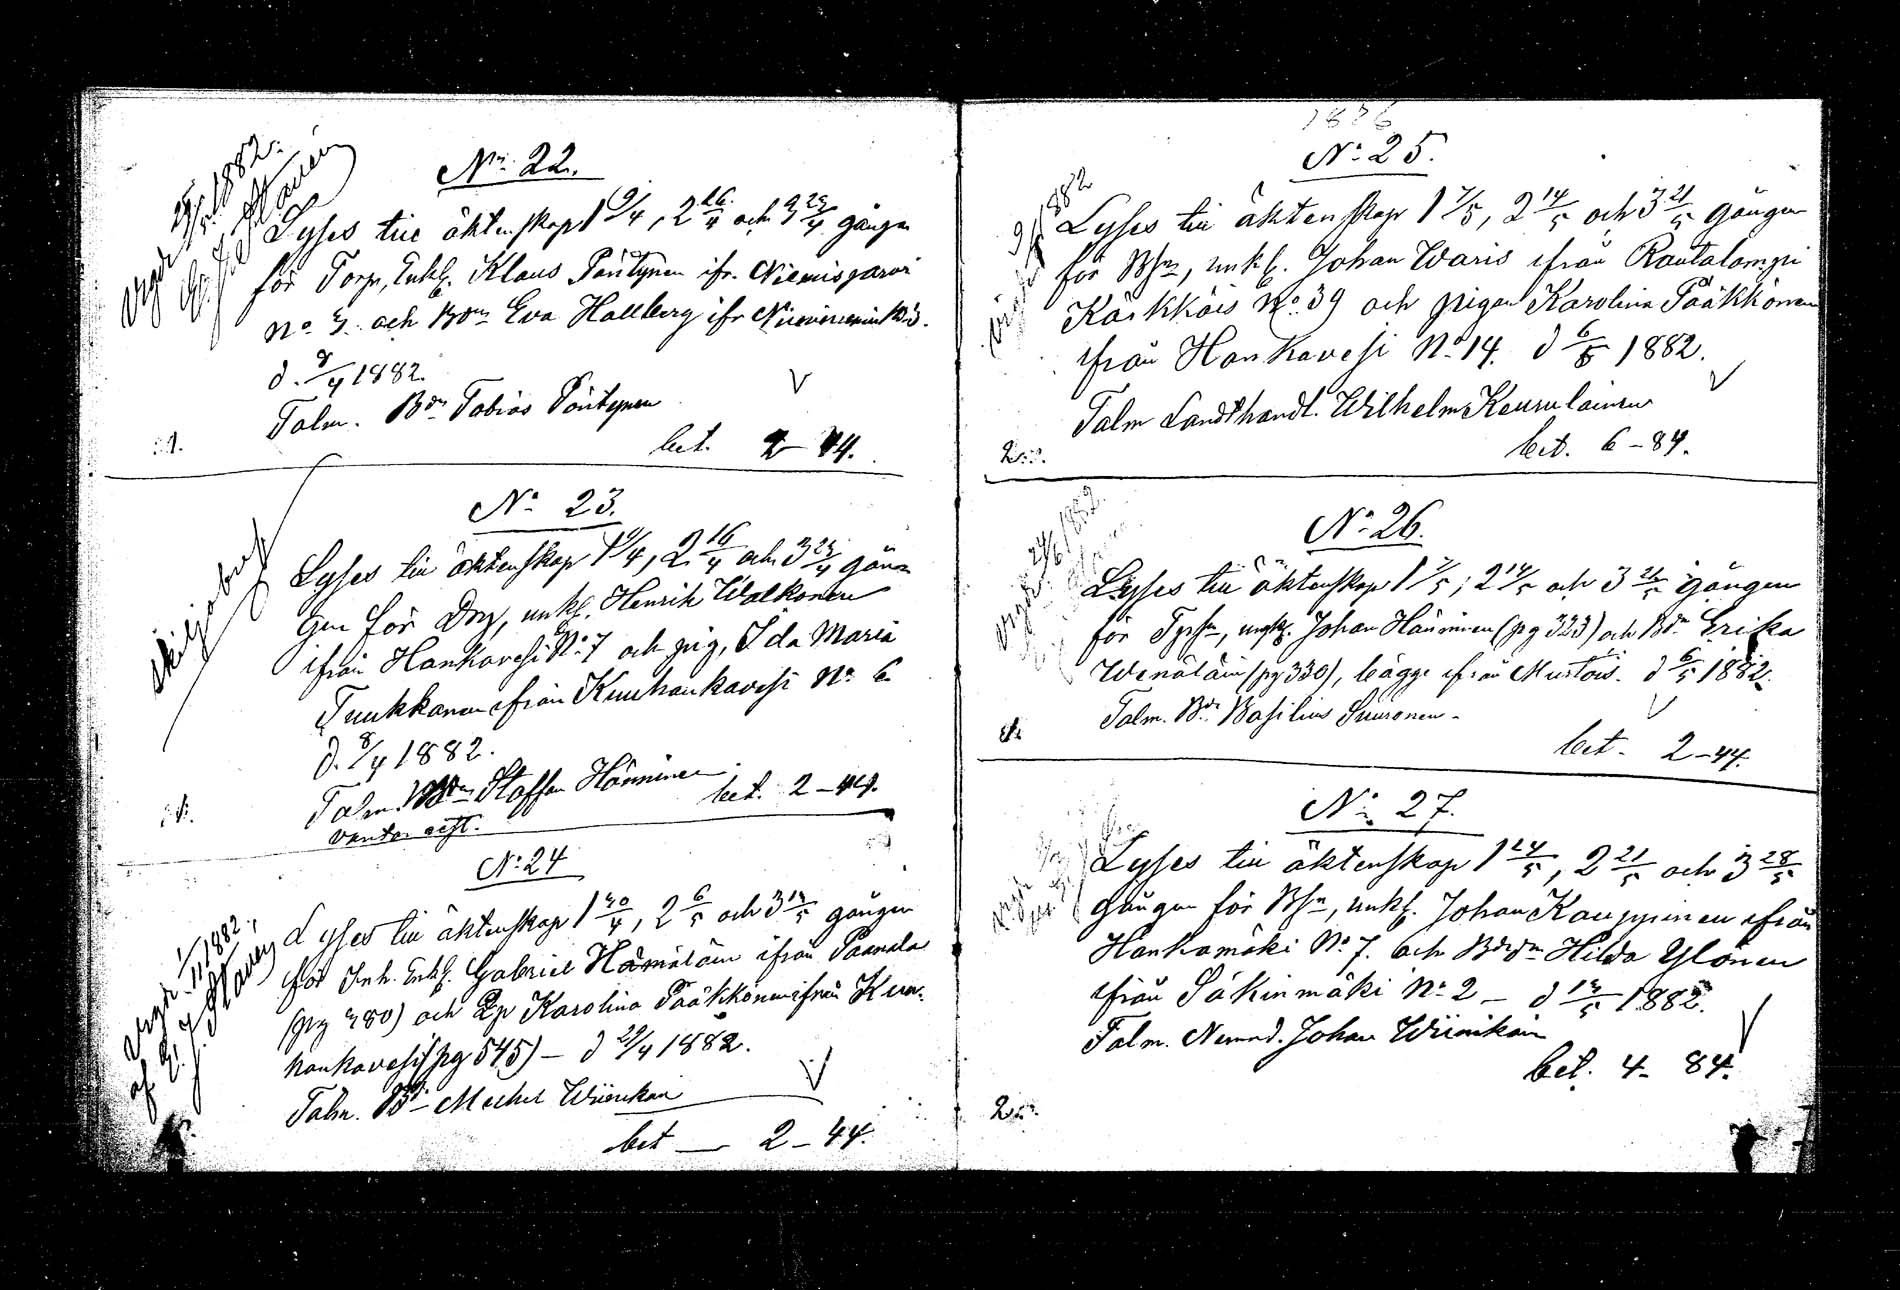 No. 22.
Vigde 1882.
Lyses till äktenskap 1 9/4, 2 16/4 och 3 23/4 gången
för Torp, Enkl. Klaus Pöntynen ifr. Niemisjärvi
No 3. och Bdr Eva Hallberg ifr
d. 8/4 1882.
Talm. Bdn Tobias Pöntynen
bet. 2-44.
No. 23.
skiljobref
Lyses till äktenskap 1 9/4, 2 16/4 och 3 23/4 gån
gen för Drg, unkl. Henrik Walkonen
ifrån Hankavesi No. 7 och pig, Ida Maria
Tuukkanen ifrån Kuuhankavesi No. 6
d. 8/4 1882.
Talm. Staffan Hänninen
bet. 2-44.
No. 24
Vigde 1/11 1882,
Lyses till äktenskap 1 30/4, 2 6/5 och 3 13/5 gången
för Inh. Enkl. Gabriel Hämäläin ifrån Paanala
(pg 380) och Karolina Pääkkönen ifrån Kuu-
hankavesi (pg 545) – d 29/4 1882.
Talm. Bd. Michel Wiinikain
bet — 2-44.
No. 25.
Vigde 1882
Lyses till äktenskap 1 7/5, 2 14/5 och 3 21/5 gången
för Bsn, unkl. Johan Waris ifrån Rautalampi
Kärkkäis No. 39 och pigan Karolina Pääkkönen
ifrån Hankavesi No. 14. d 6/5 1882.
Talm Landthandl. Wilhelm Keurulainen
bet. 6-84.
No. 26.
Vigde 24/6 1882.
Lyses till äktenskap 1 7/5, 2 14/5 och 3 21/5 gången
för unkl. Johan Hänninen (pg 323) och Bdr Erika
Wenäläin (pg 330), bägge ifrån Mustois. d 6/5 1882.
Talm. Bdn Basilius Suuronen.
bet. 2-44.
No. 27.
Lyses till äktenskap 1 14/5, 2 21/5 och 3 28/5
gången för Bsn, unkl. Johan Kauppinen ifrån
Hankamäki No. 7. och Hilda Ylönen
ifrån Säkinmäki No. 2 – d 13/5 1882.
Talm. Nemnd. Johan Wiinikain
bet. 4-84.